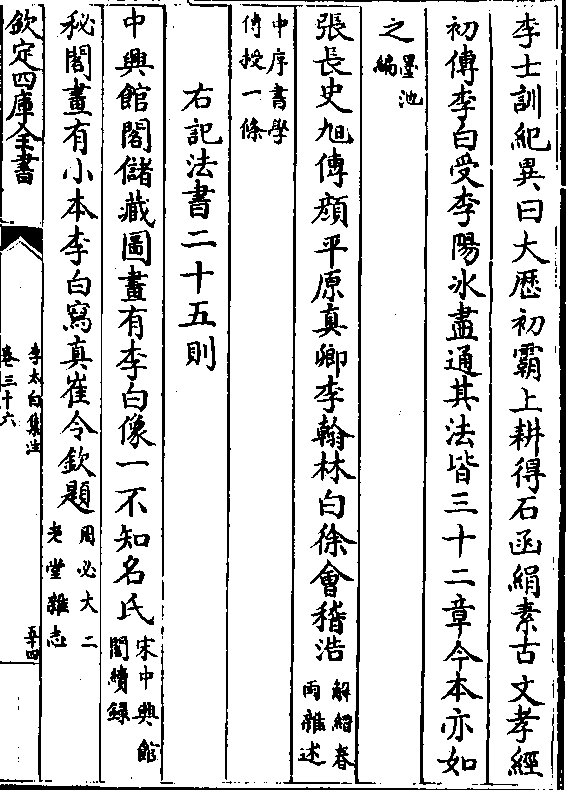 李士訓紀異曰大厯初霸上耕得石函絹素古文孝經
初傳李白受李陽冰盡通其法皆三十二章今本亦如
之墨池編
張長史旭傳顔平原真卿李翰林白徐㑹稽浩解縉春雨雜述
中序書學傳授一條
右記法書二十五則
中興館閣儲藏圖畫有李白像一不知名氏宋中興館閣續録
秘閣畫有小本李白寫真崔令欽題周必大二老堂雜志
欽定四庫全書
李太白集注
卷三十六
五十四